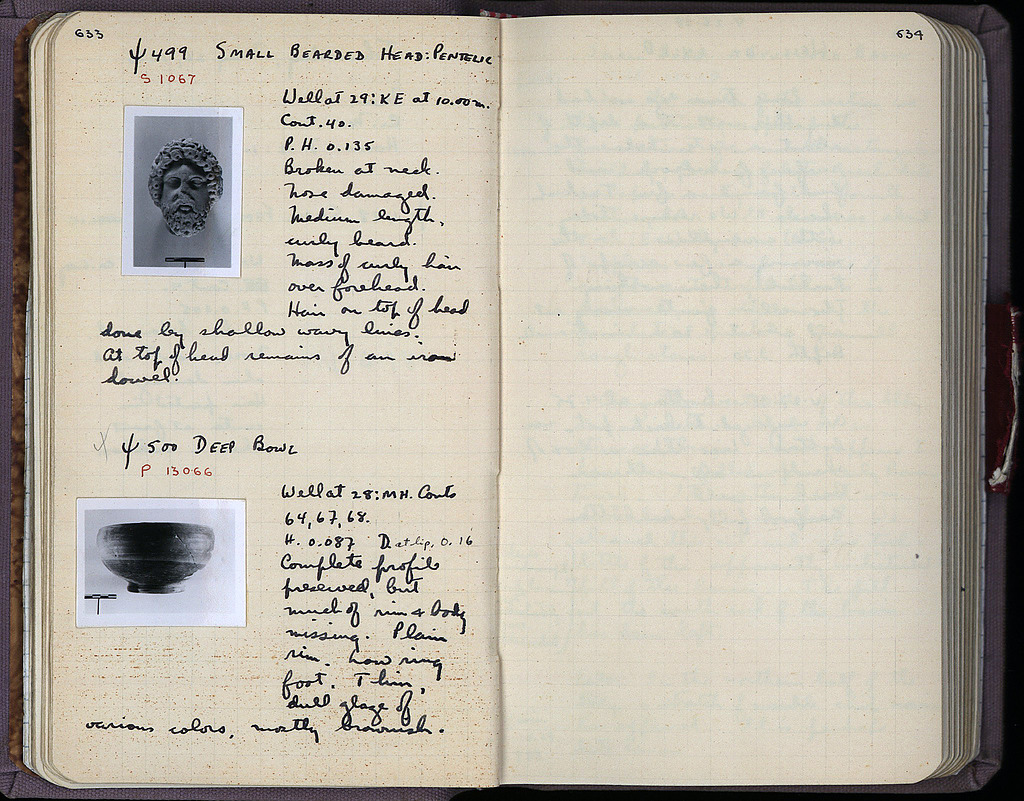 633
ψ 499 SMALL BEARDED HEAD: PENTELIC
S 1067
Well at 29:KE at 10.00m.
Cont. 40.
P.H. 0.135
Broken at neck.
Nose damaged.
Medium length,
curly beard.
Mass of curly hair
over forehead.
Hair on top of head
done by shallow wavy lines.
At top of head remains of an iron
dowel.
X ψ 500 DEEP BOWL
P 13066
Well at 28:MH. Conts
64, 67, 68.
H. 0.087 D. at lip, 0.16
Complete profile
preserved, but
much of rim & body
missing. Plain
rim. Low ring
foot. Thin,
dull glaze of
various colors, mostly brownish.
634